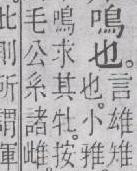 鳴也。言雄雉
也。小雅
鳴求其牡。按
毛公系諸雌
此則所謂